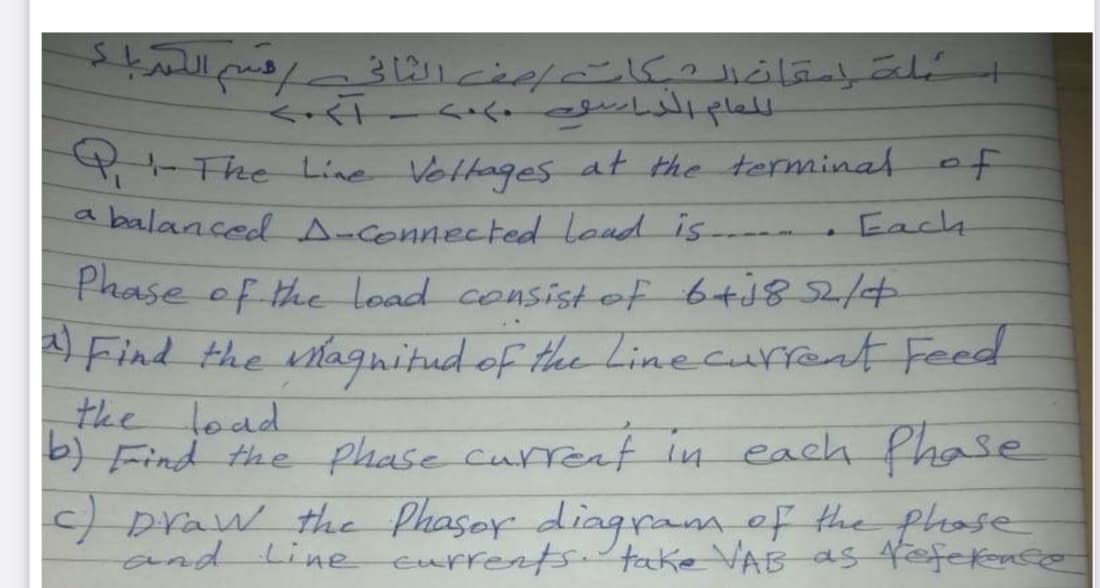 للعام الدراسي ٢٠٢٠ - ٢٠٢١
Q1:- The Line Voltages at the terminal of
a balanced Δ-connected load is...... . Each
Phase of the load consist of 6+j8 Ω/φ
a) Find the magnitud of the Line current Feed
the load
b) Find the phase current in each Phase
c) Draw the Phasor diagram of the phase
and Line currents. take VAB as reference